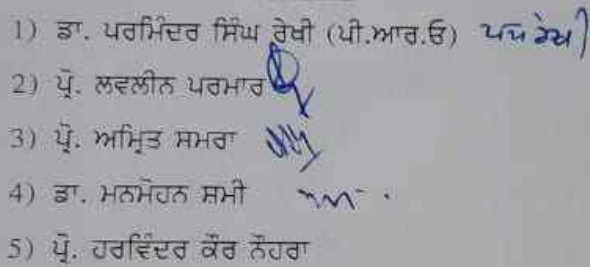 1) ਡਾ. ਪਰਮਿੰਦਰ ਸਿੰਘ ਰੇਖੀ (ਪੀ.ਆਰ.ਓ)
2) ਪ੍ਰੋ. ਲਵਲੀਨ ਪਰਮਾਰ
3) ਪ੍ਰੋ. ਅਮ੍ਰਿਤ ਸਮਰਾ
4) ਡਾ. ਮਨਮੋਹਨ ਸਮੀ
5) ਪ੍ਰੋ. ਹਰਵਿੰਦਰ ਕੌਰ ਨੌਹਰਾ